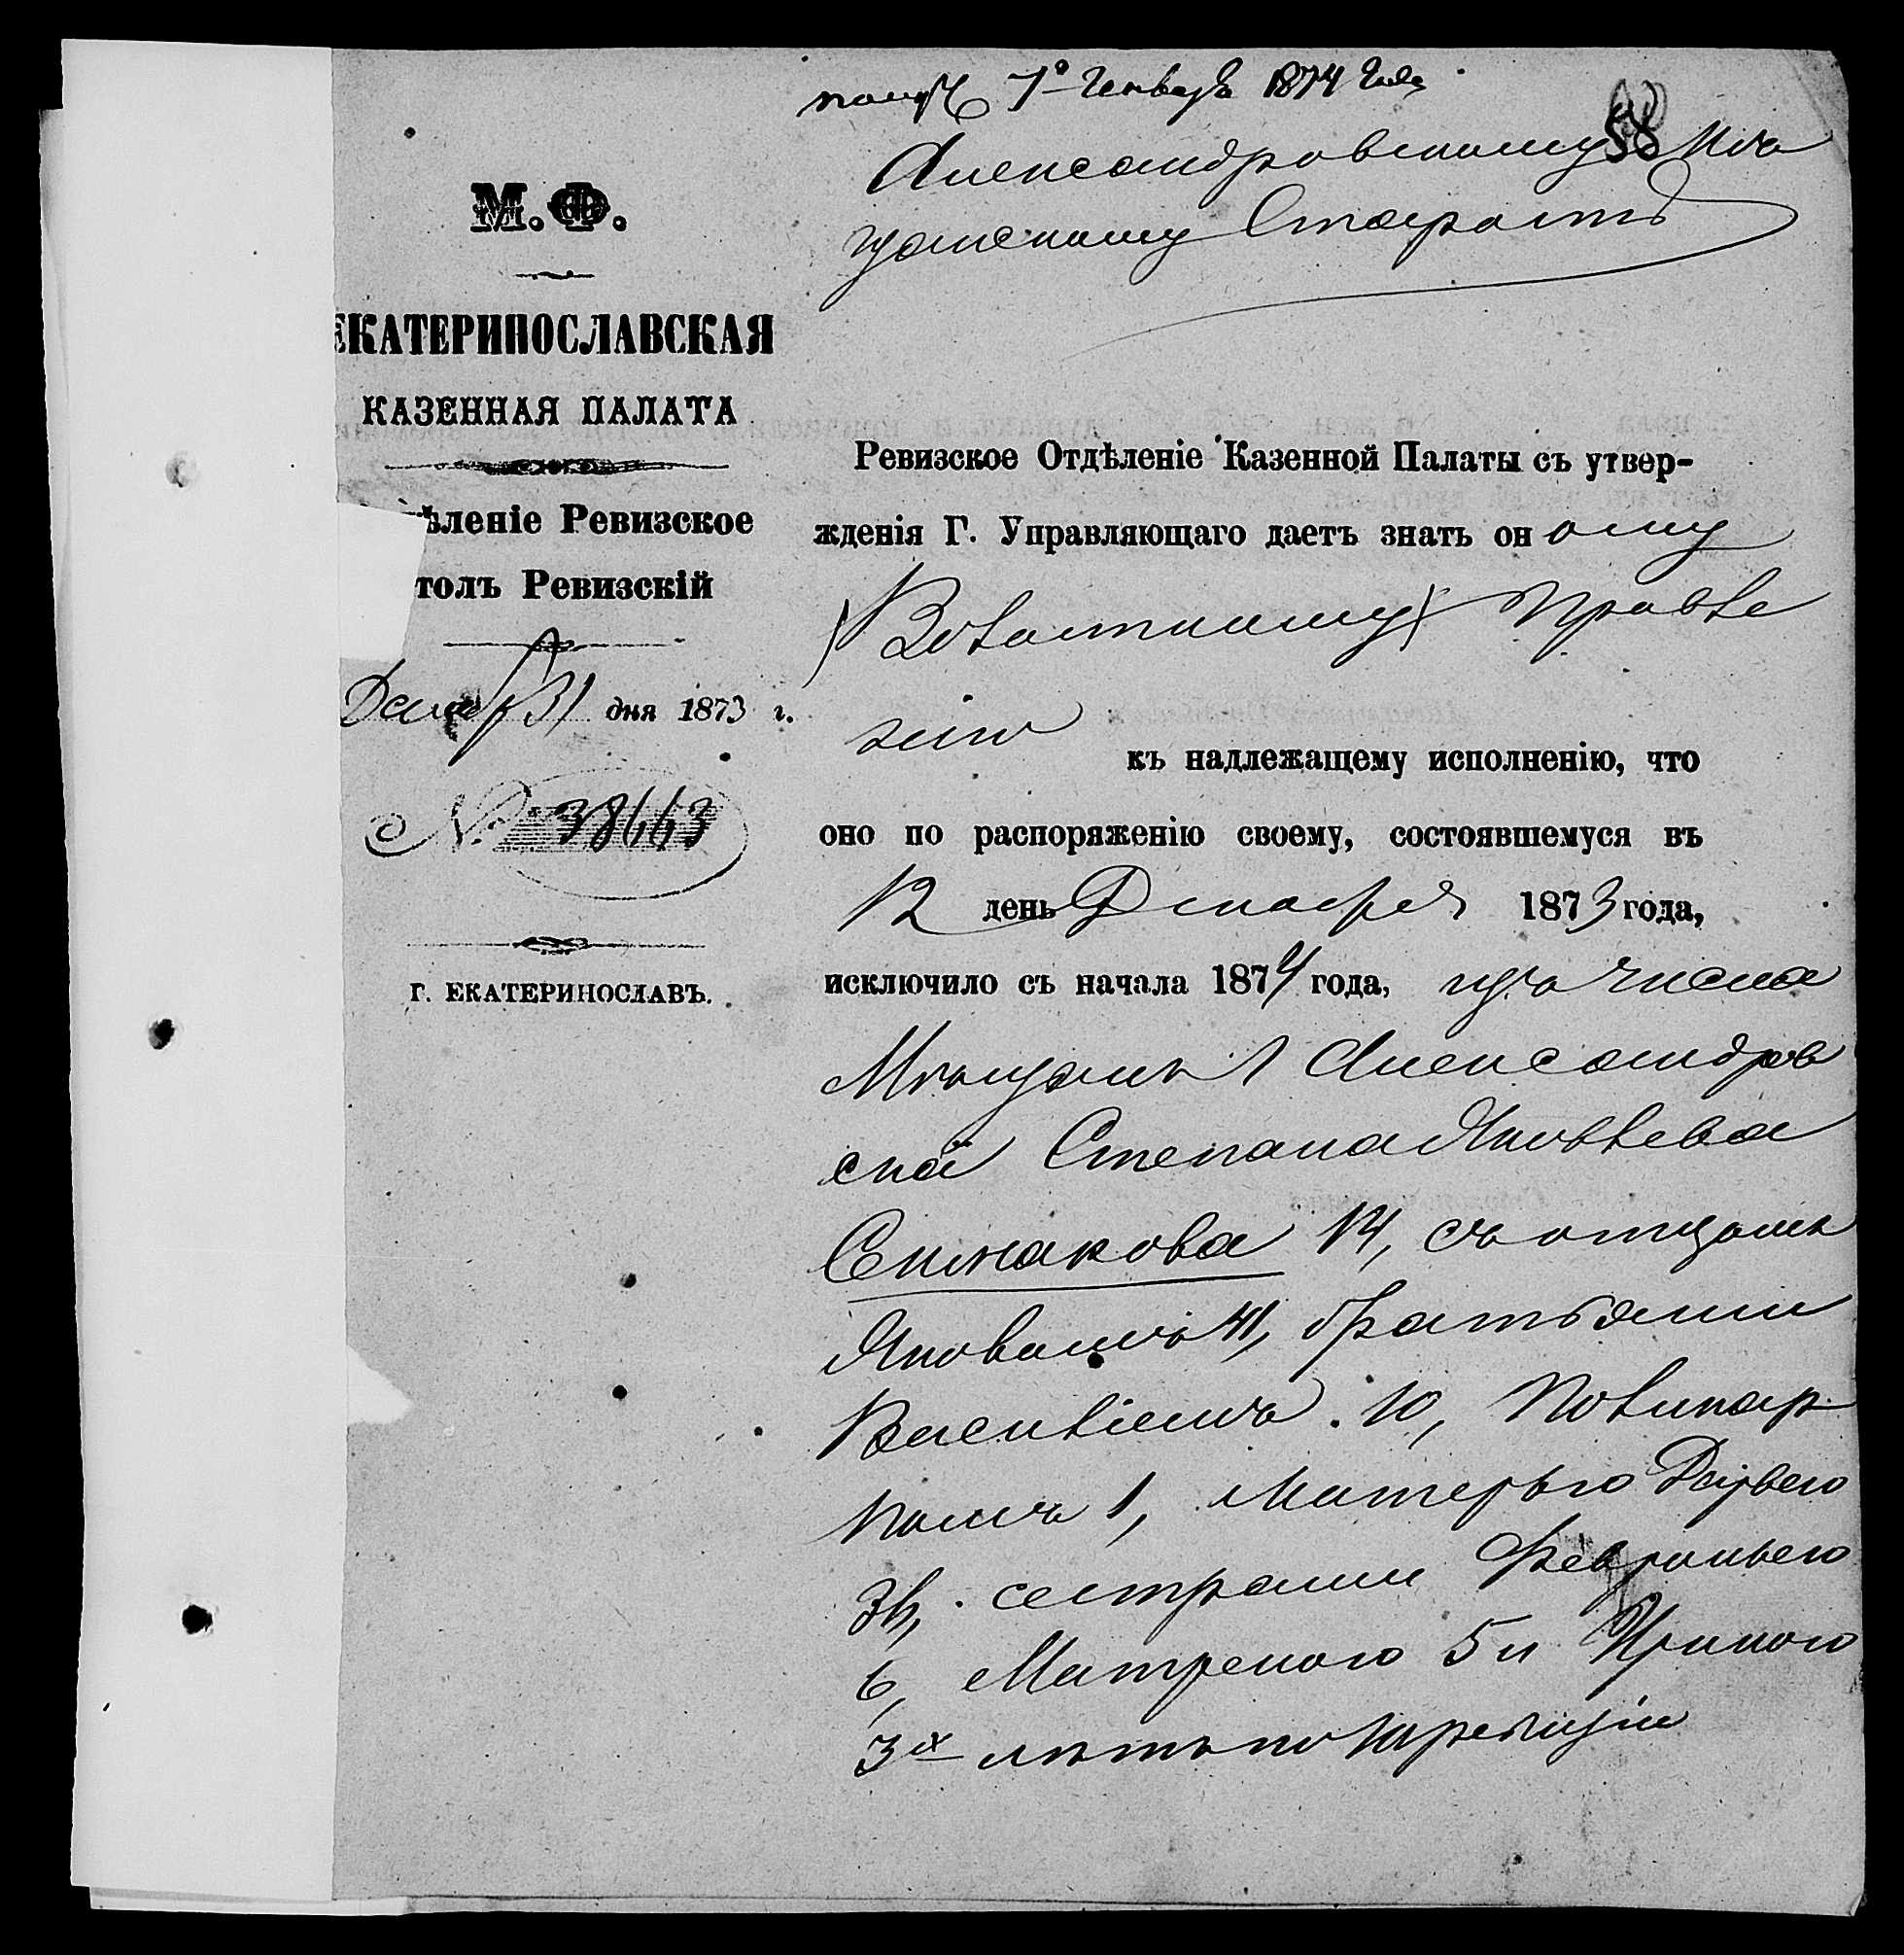 получ. 7го Генваря 1874 года
58
Александровскому Мѣ
щанскому Старостѣ
М.Ф.
ЕКАТЕРИНОСЛАВСКАЯ
КАЗЕННАЯ ПАЛАТА
ѣленіе Ревизское
толъ Ревизскій
Декабр 31 дня 1873 г.
№ 38663
г. ЕКАТЕРИНОСЛАВЪ.
Ревизское Отдѣленіе Казенной Палаты съ утвер-
жденія Г. Управляющаго даетъ знать оному
(Волостному) Правле
нію къ надлежащему исполненію, что
оно по распоряженію своему, состоявшемуся въ
12 день Декабря 1873 года,
исключило съ начала 1874 года, изъ числа
Мѣщанъ Александров
ска Степана Яковлева
14, съ отцомъ
Яковомъ 41, братьями
Василіемъ 10, Поликар
помъ 1, матерью Дарьею
сестрами Февроньею
6, Матреною 5 и Ириною
3х лѣтъ по ревизіи